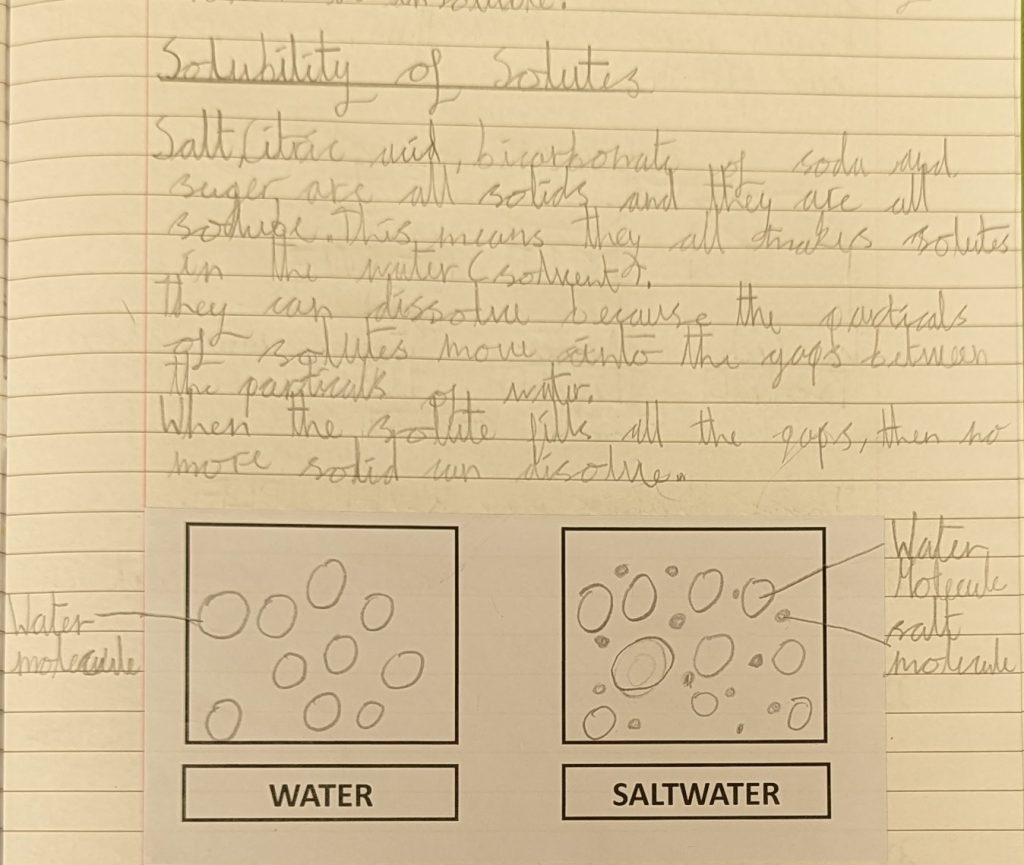 Solubility of Solutes
Salt, Citric acid, bicarbonate of soda and
suger are all solids and they are all
This means they all makes solutes
in the water (solvent).
They can dissolve because the particals
of solutes move into the gaps between
the particals of water.
When the solute fills all the gaps, then no
more solid can disolve.
Water
molecule
Water
Molecule
salt
molecule
WATER
SALTWATER